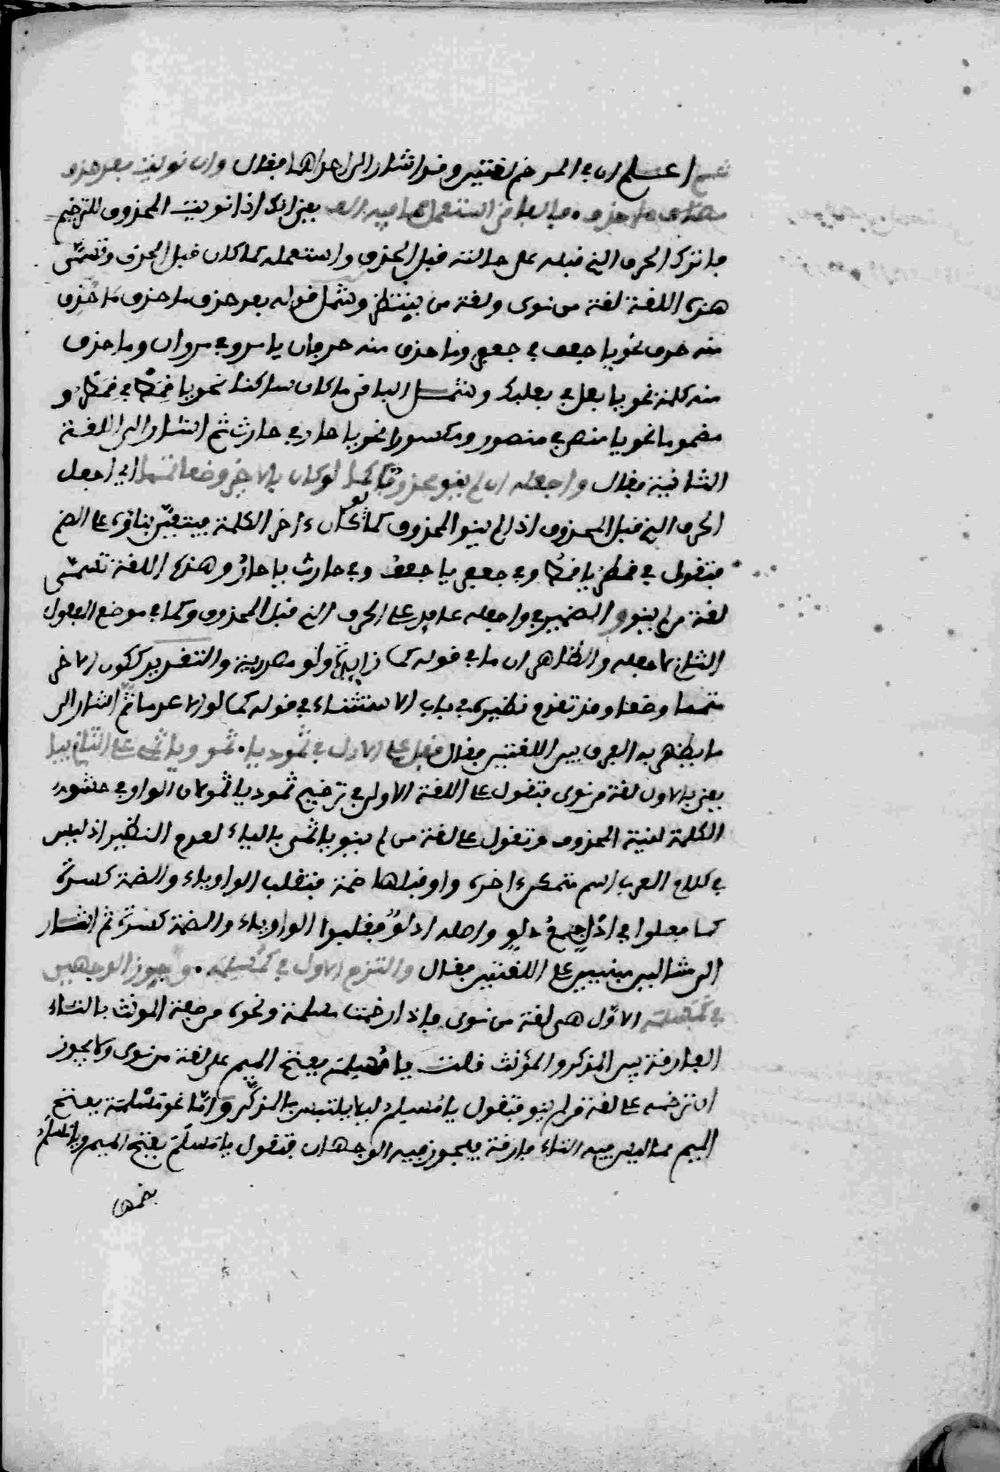 ثم اعلم ان في المرخم لغتين وقد اشار الى احداهما بقال وان نويت بعد حذف
ما حذف فالباقي استعمل بما فيه الف يعني انك اذا نويت المحذوف للترخيم
فاترك الحرف الذي قبله على حالته قبل الحذف واستعمله كما كان قبل الحذف وتسمى
هذه اللغة لغة من نوى ولغة من ينتظر وشمل قوله بعد حذف ما حذف ما حذف
منه حرف نحو يا جعف في جعفر وما حذف منه حرفان يا مرو في مروان وما حذف
منه كلمة نحو يا بعل في بعلبك وشمل الباقي ما كان ساكنا نحو يا قمط في قمطر و
مضموما نحو يا منص في منصور ومكسورا نحو يا حار في حارث ثم اشار الى اللغة
الثانية فقال واجعله ان لم تنو محذوفا كما لو كان بالاخر وضعا تمما اي اجعل
الحرف الذي قبل المحذوف اذا لم ينو المحذوف كما لو كان ءاخر الكلمة فيتعين بناؤه على الضم
فتقول في قمطر يا قمط وفي جعفر يا جعف وفي حارث يا حار وهذه اللغة تسمى
لغة من لم ينو والضمير في واجعله عايد على الحرف الذي قبل المحذوف وكما في موضع المفعول
الثاني لاجعله والظاهر ان ما في قوله كما زايدة ولو مصدرية والتقدير ككون الاخر
متمما وضعا وقد تقدم نظيره في باب الاستثناء في قوله كما لو الا عدما ثم اشار الى
ما يظهر به الفرق بين اللغتين فقال فقل على الاول في ثمود يا . ثمو ويا ثمي على الثاني بيا
يعني بالاول لغة من نوى فتقول على اللغة الاولى في ترخيم ثمود يا ثمو لان الواو في حشو
الكلمة لنية المحذوف وتقول على لغة من لم ينو يا ثمي بالياء لعدم النظير اذ ليس
في كلام العرب اسم متمكن ءاخره واو قبلها ضمة فتقلب الواو ياء والضمة كسرة
كما فعلوا في ادل جمع دلو واصله ادلو فقلبوا الواو ياء والضمة كسرة ثم اشار
الى مثالين مبنيين على اللغتين فقال والتزم الاول في كمسلمه . وجوز الوجهين
في كمسلمه الاول هي لغة من نوى فاذا رخمت مسلمة ونحوه من صفة المونث بالتاء
الفارقة بين المذكر والمؤنث قلت يا مسلم بفتح الميم على لغة من نوى ولا يجوز
ان ترخمه على لغة من لم ينو فتقول يا مسلم ليلا يلتبس بالمذكر واما نحو مسلمة بفتح
الميم مما ليس فيه التاء فارقة فيجوز فيه الوجهان فتقول يا مسلم بفتح الميم ويا مسلم
بضمها